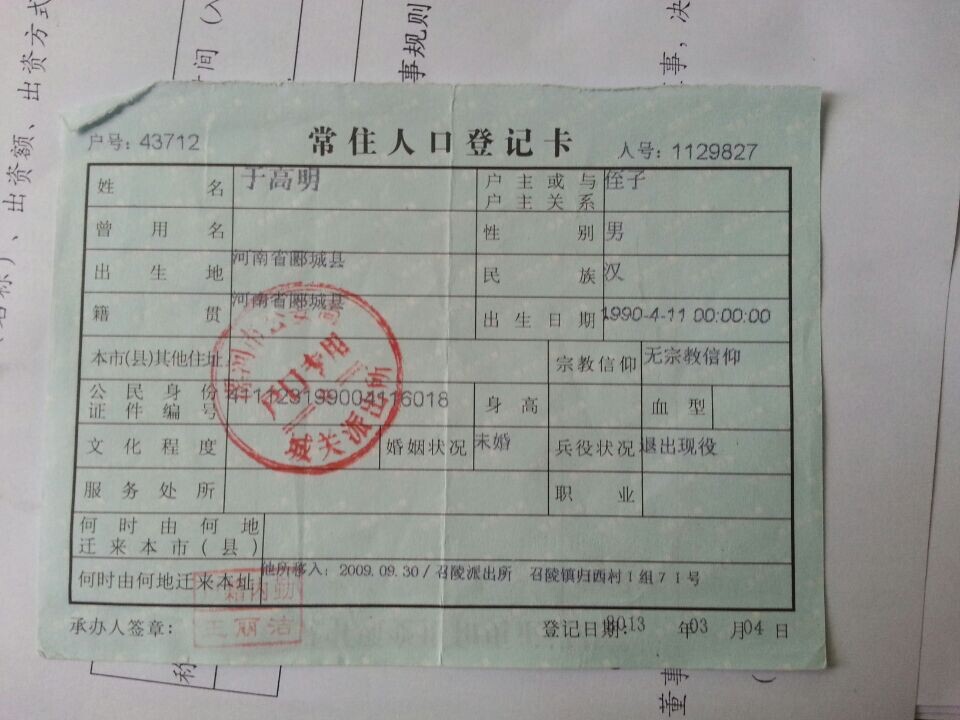 户号：43712
常住人口登记卡
人号：1129827
姓名 于高明 户主或与户主关系 侄子
曾用名 性别 男
出生地 河南省郾城县 民族 汉
籍贯 河南省郾城县 出生日期 1990-4-11 00:00:00
本市(县)其他住址 宗教信仰 无宗教信仰
公民身份证件编号 411123199004116018 身高 血型
文化程度 婚姻状况 未婚 兵役状况 退出现役
服务处所 职业
何时由何地迁来本市(县)
何时由何地迁来本址 他所移入：2009.09.30/召陵派出所 召陵镇归西村1组71号
承办人签章： 王丽洁
登记日期：2013年03月04日
户口专用
城关派出所
出资额、出资方式
事规则
董事